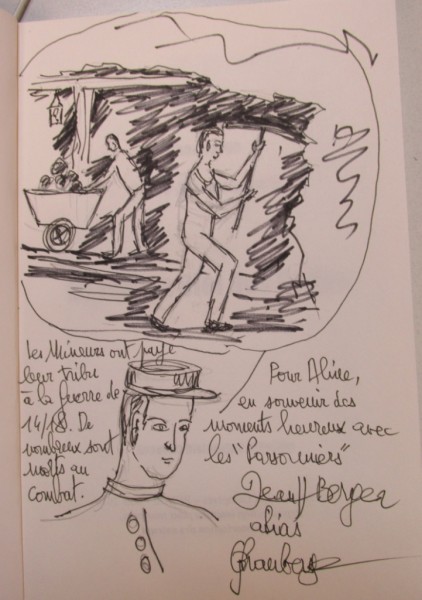 Les Mineurs ont payé
leur tribu
à la guerre de
14/18. De
nombreux sont
morts au
combat.
Pour Aline,
en souvenir des
moments heureux avec
les
Jean
alias